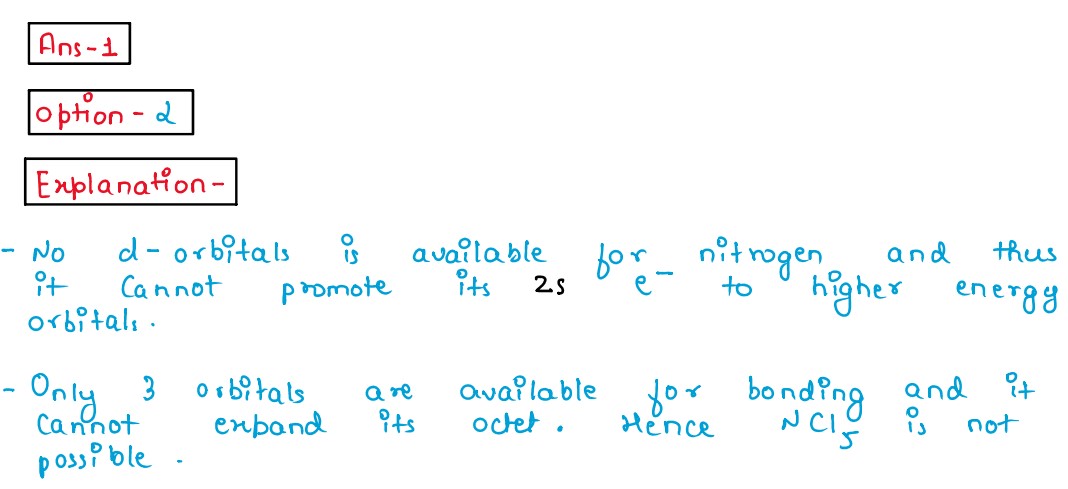 Ans-1
Option-2
Explanation-
- No d-orbitals is available for nitrogen and thus
it Cannot promote its 2s e⁻ to higher energy
orbitals.
- Only 3 orbitals are available for bonding and it
Cannot expand its octet. Hence NCl₅ is not
possible.